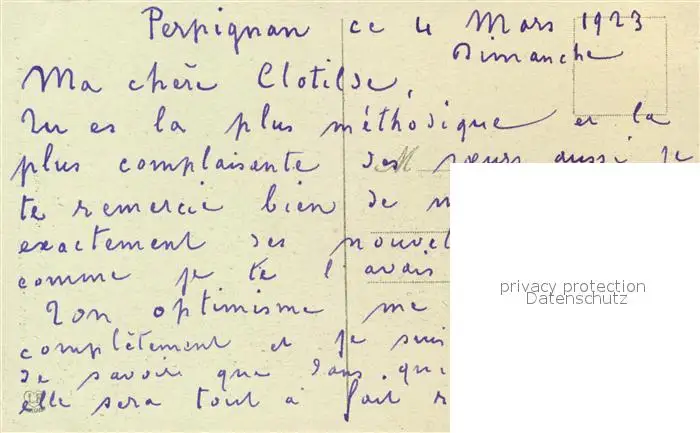 Perpignan ce 4 Mars 1923
Dimanche
Ma chère Clotilde,
Tu es la plus méthodique et la
plus complaisante des sœurs aussi je
te remercie bien de
exactement des
comme je te l'avais
Ton optimisme me
complètement et je suis
de savoir que dans
elle sera tout à fait
privacy protection
Datenschutz